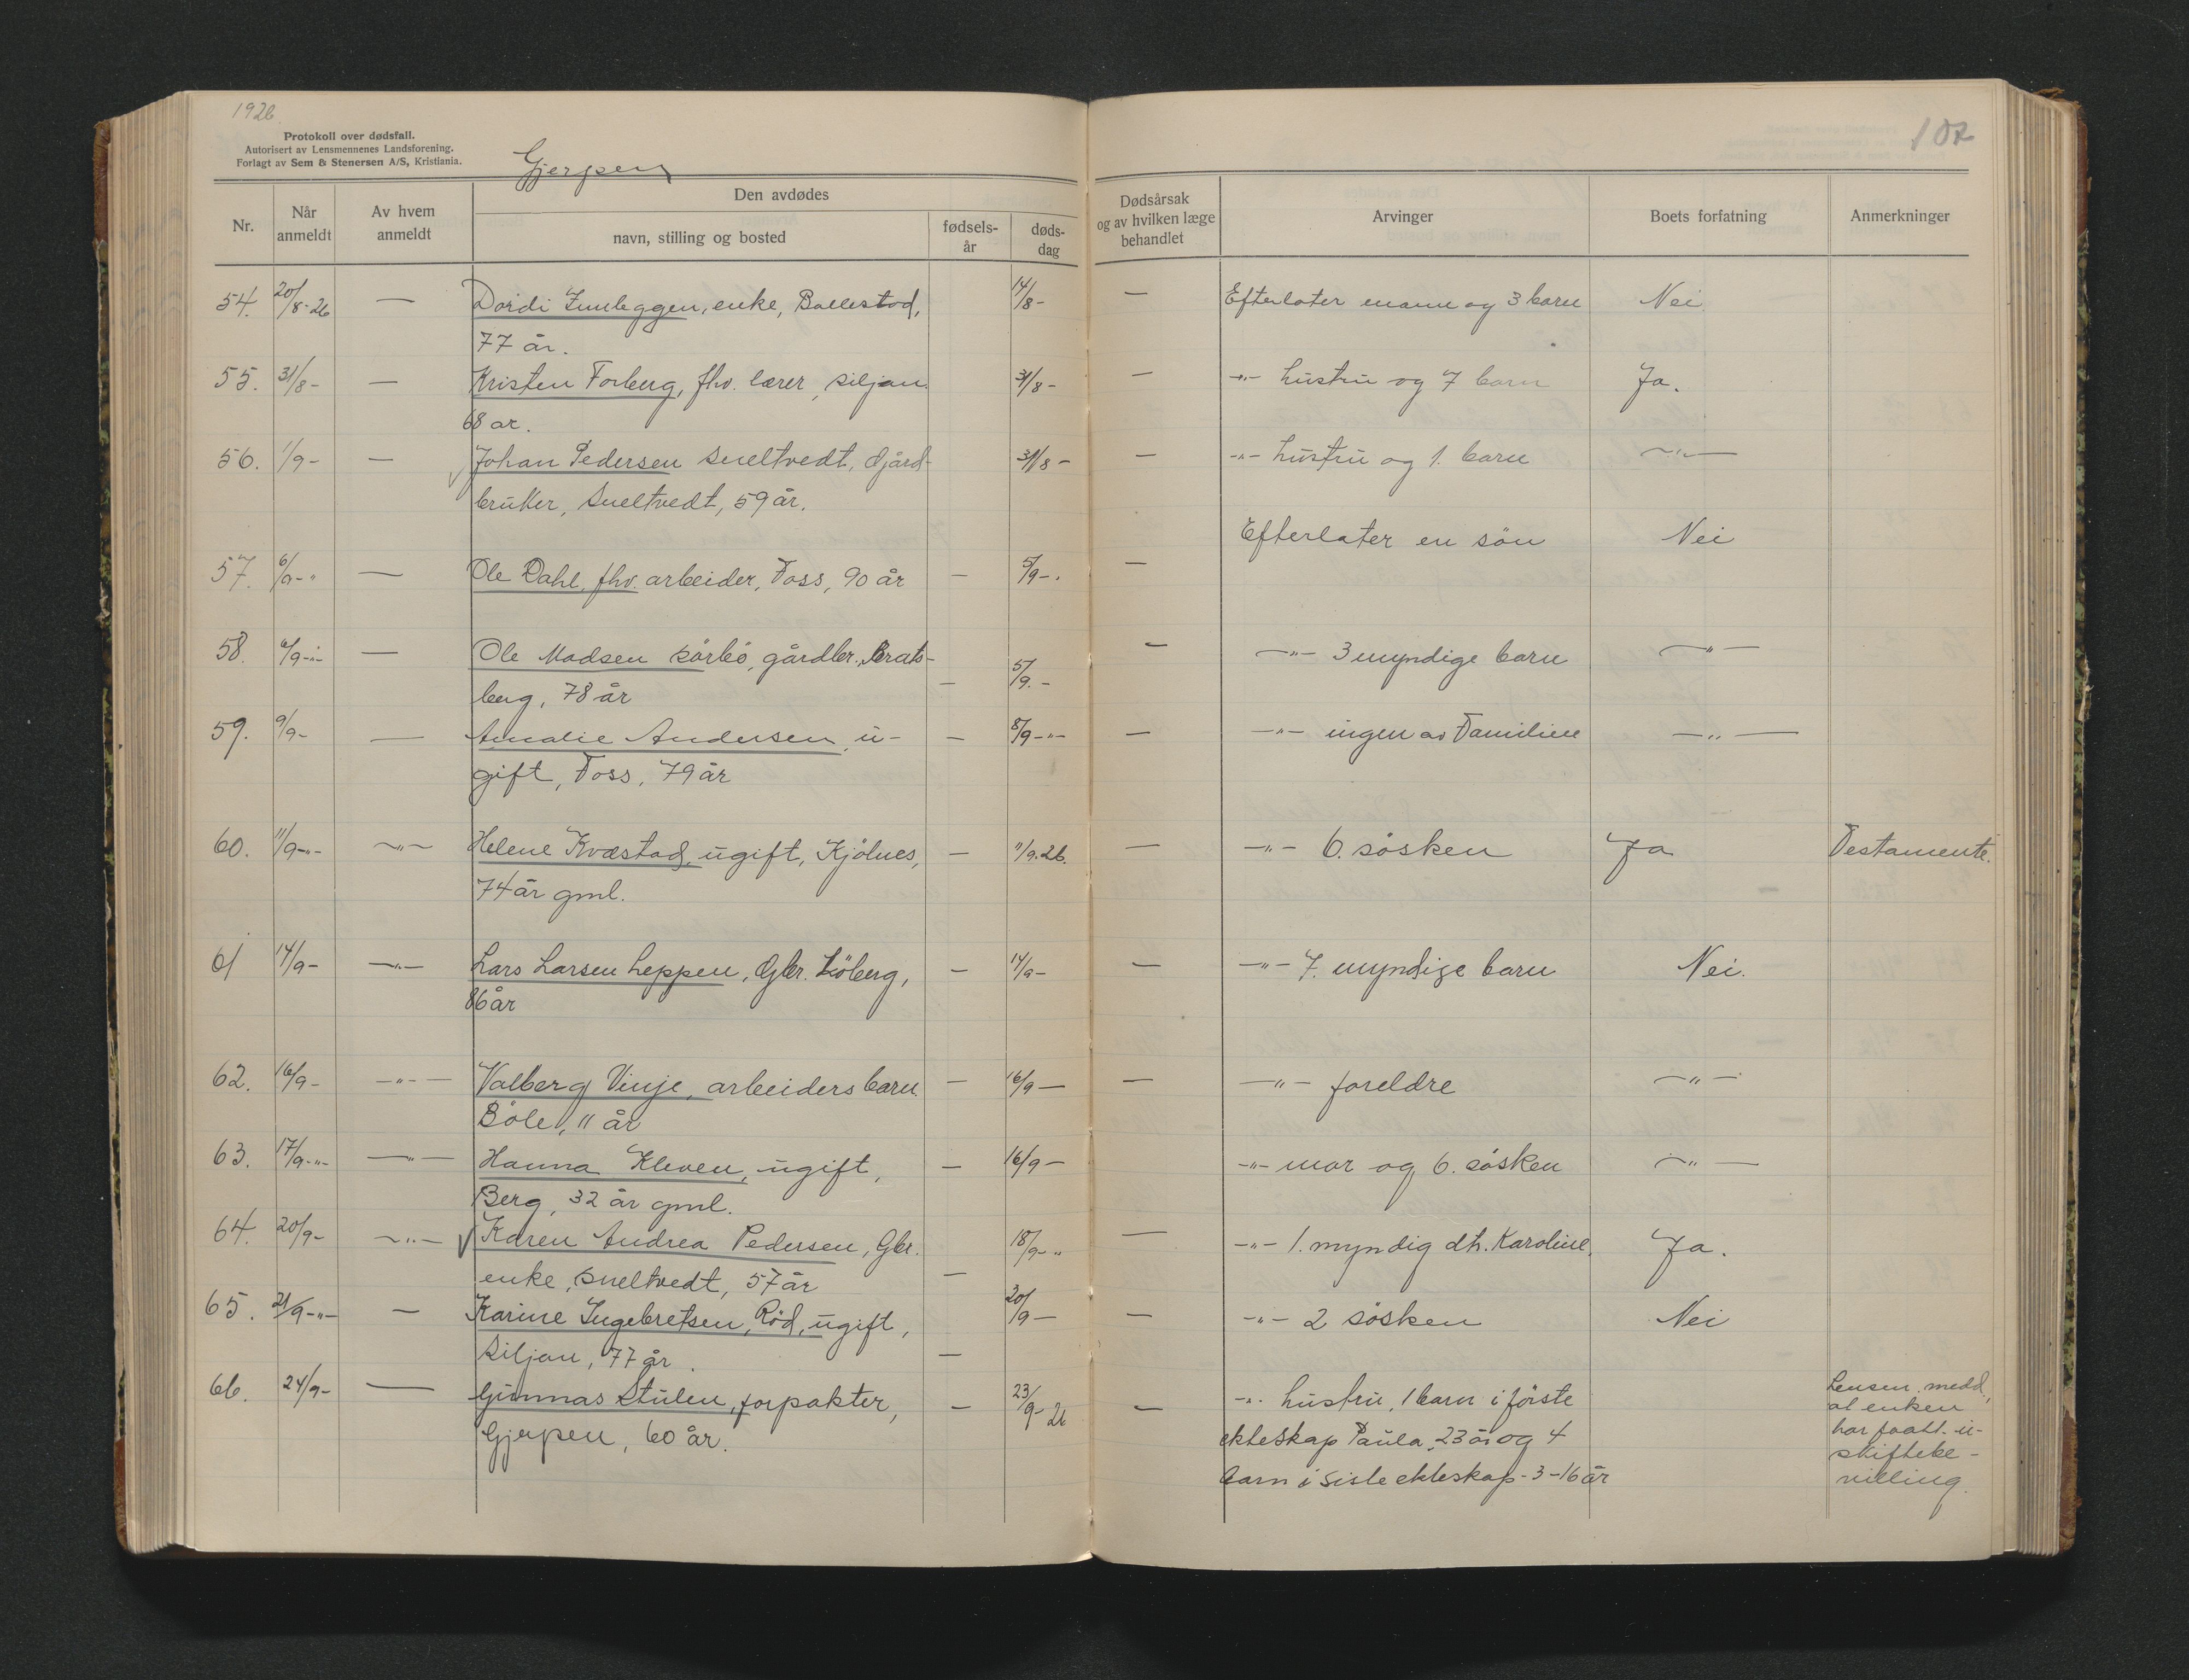 1926
Protokoll over dødsfall.
Autorisert av Lensmennenes Landsforening.
Forlagt av Sem & Stenersen A/S, Kristiania.
Gjerpen
102
Nr.
Når anmeldt
Av hvem anmeldt
Den avdødes
navn, stilling og bosted
fødsels-år
døds-dag
Dødsårsak og av hvilken læge behandlet
Arvinger
Boets forfatning
Anmerkninger
54. 20/8-26 — Dordi enke, Ballestad, 14/8- — Efterlater mann og 3 barn Nei
77 år.
55. 31/8- — Kristen Forberg, fhv. lærer, Siljan. 31/8- — -"- hustru og 7 barn Ja.
68 ar.
56. 1/9- — Johan Pedersen Sneltvedt, Gjård- 31/8- — -"- hustru og 1. barn -"-
bruker, Sneltvedt, 59 år.
57. 6/9-" — Ole Dahl, fhv. arbeider, Foss, 90 år — 5/9-. — Efterlater en sön Nei
58. 6/9-"- — Ole Madsen Sörbö, gårdbr., Brats- — 5/9.- — -"- 3 myndige barn -"-
berg, 78 år
59. 9/9- — Amalie Andersen, u- — 8/9-"- — -"- ingen av Familien -"-
gift, Foss, 79 år
60. 11/9-"- -"- Helene Kvæstad, ugift, Kjölnes, — 11/9.26. — -"- 6. sösken Ja Testamente.
74 år gml.
61 14/9- -"- Lars Larsen Leppen, Gbr. Löberg, — 14/9- — -"- 7. myndige barn Nei.
86 år
62. 16/9- -"- Valberg Vinje, arbeiders barn — 16/9- — -"- foreldre -"-
Böle, 11 år
63. 17/9-"- -"- Hanna Kleven, ugift, — 16/9- -"- mor og 6. sösken -"-
Berg, 32 år gml.
64. 20/9- -"- Karen Andrea Pedersen, Gbr. — 18/9-" — -"- 1. myndig dtr. Karoline. Ja.
enke, Sneltvedt, 57 år
65. 21/9-"- — Karine Ingebretsen, Röd, ugift, — 20/9- — -"- 2 sösken Nei
Siljan, 77 år.
66. 24/9- — Gunnas Stulen, forpakter, — 23/9-26 — -"- hustru, 1 barn i förste
Gjerpen, 60 år.
ekteskap Paula, 23 år og 4
barn i siste ekteskap - 3-16 år
Lensm. medd.,
at enken
har faatt u-
skiftebe-
villing.